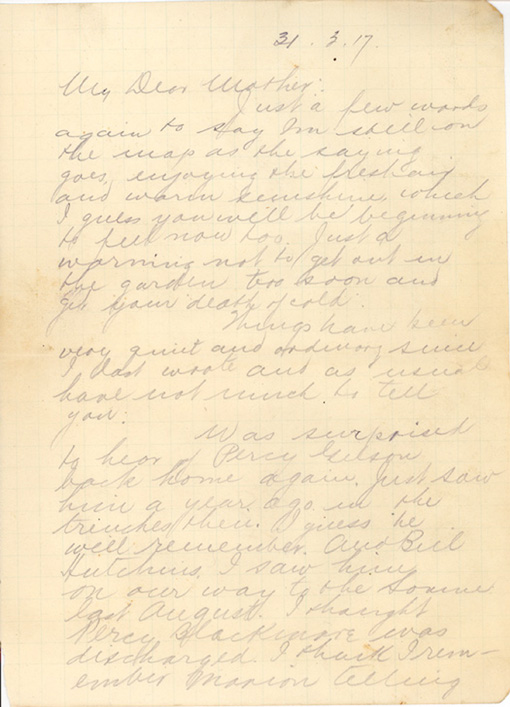 31 . 3 . 17.
My Dear Mother:
Just a few words
again to say Im still on
the map as the saying
goes, enjoying the fresh air
and warm sunshine, which
I guess you will be beginning
to feel now too. Just a
warning not to get out in
the garden too soon and
get your death of cold.
Things have been
very quiet and ordinary since
I last wrote and as usual
have not much to tell
you.
Was surprised
to hear of Percy
back home again. Just saw
him a year ago in the
trenches then. I guess he
will remember. And Bill
Hutchins. I saw him
on our way to the Somme
last August. I thought
Percy Blackmore was
discharged. I think I rem-
ember Marion